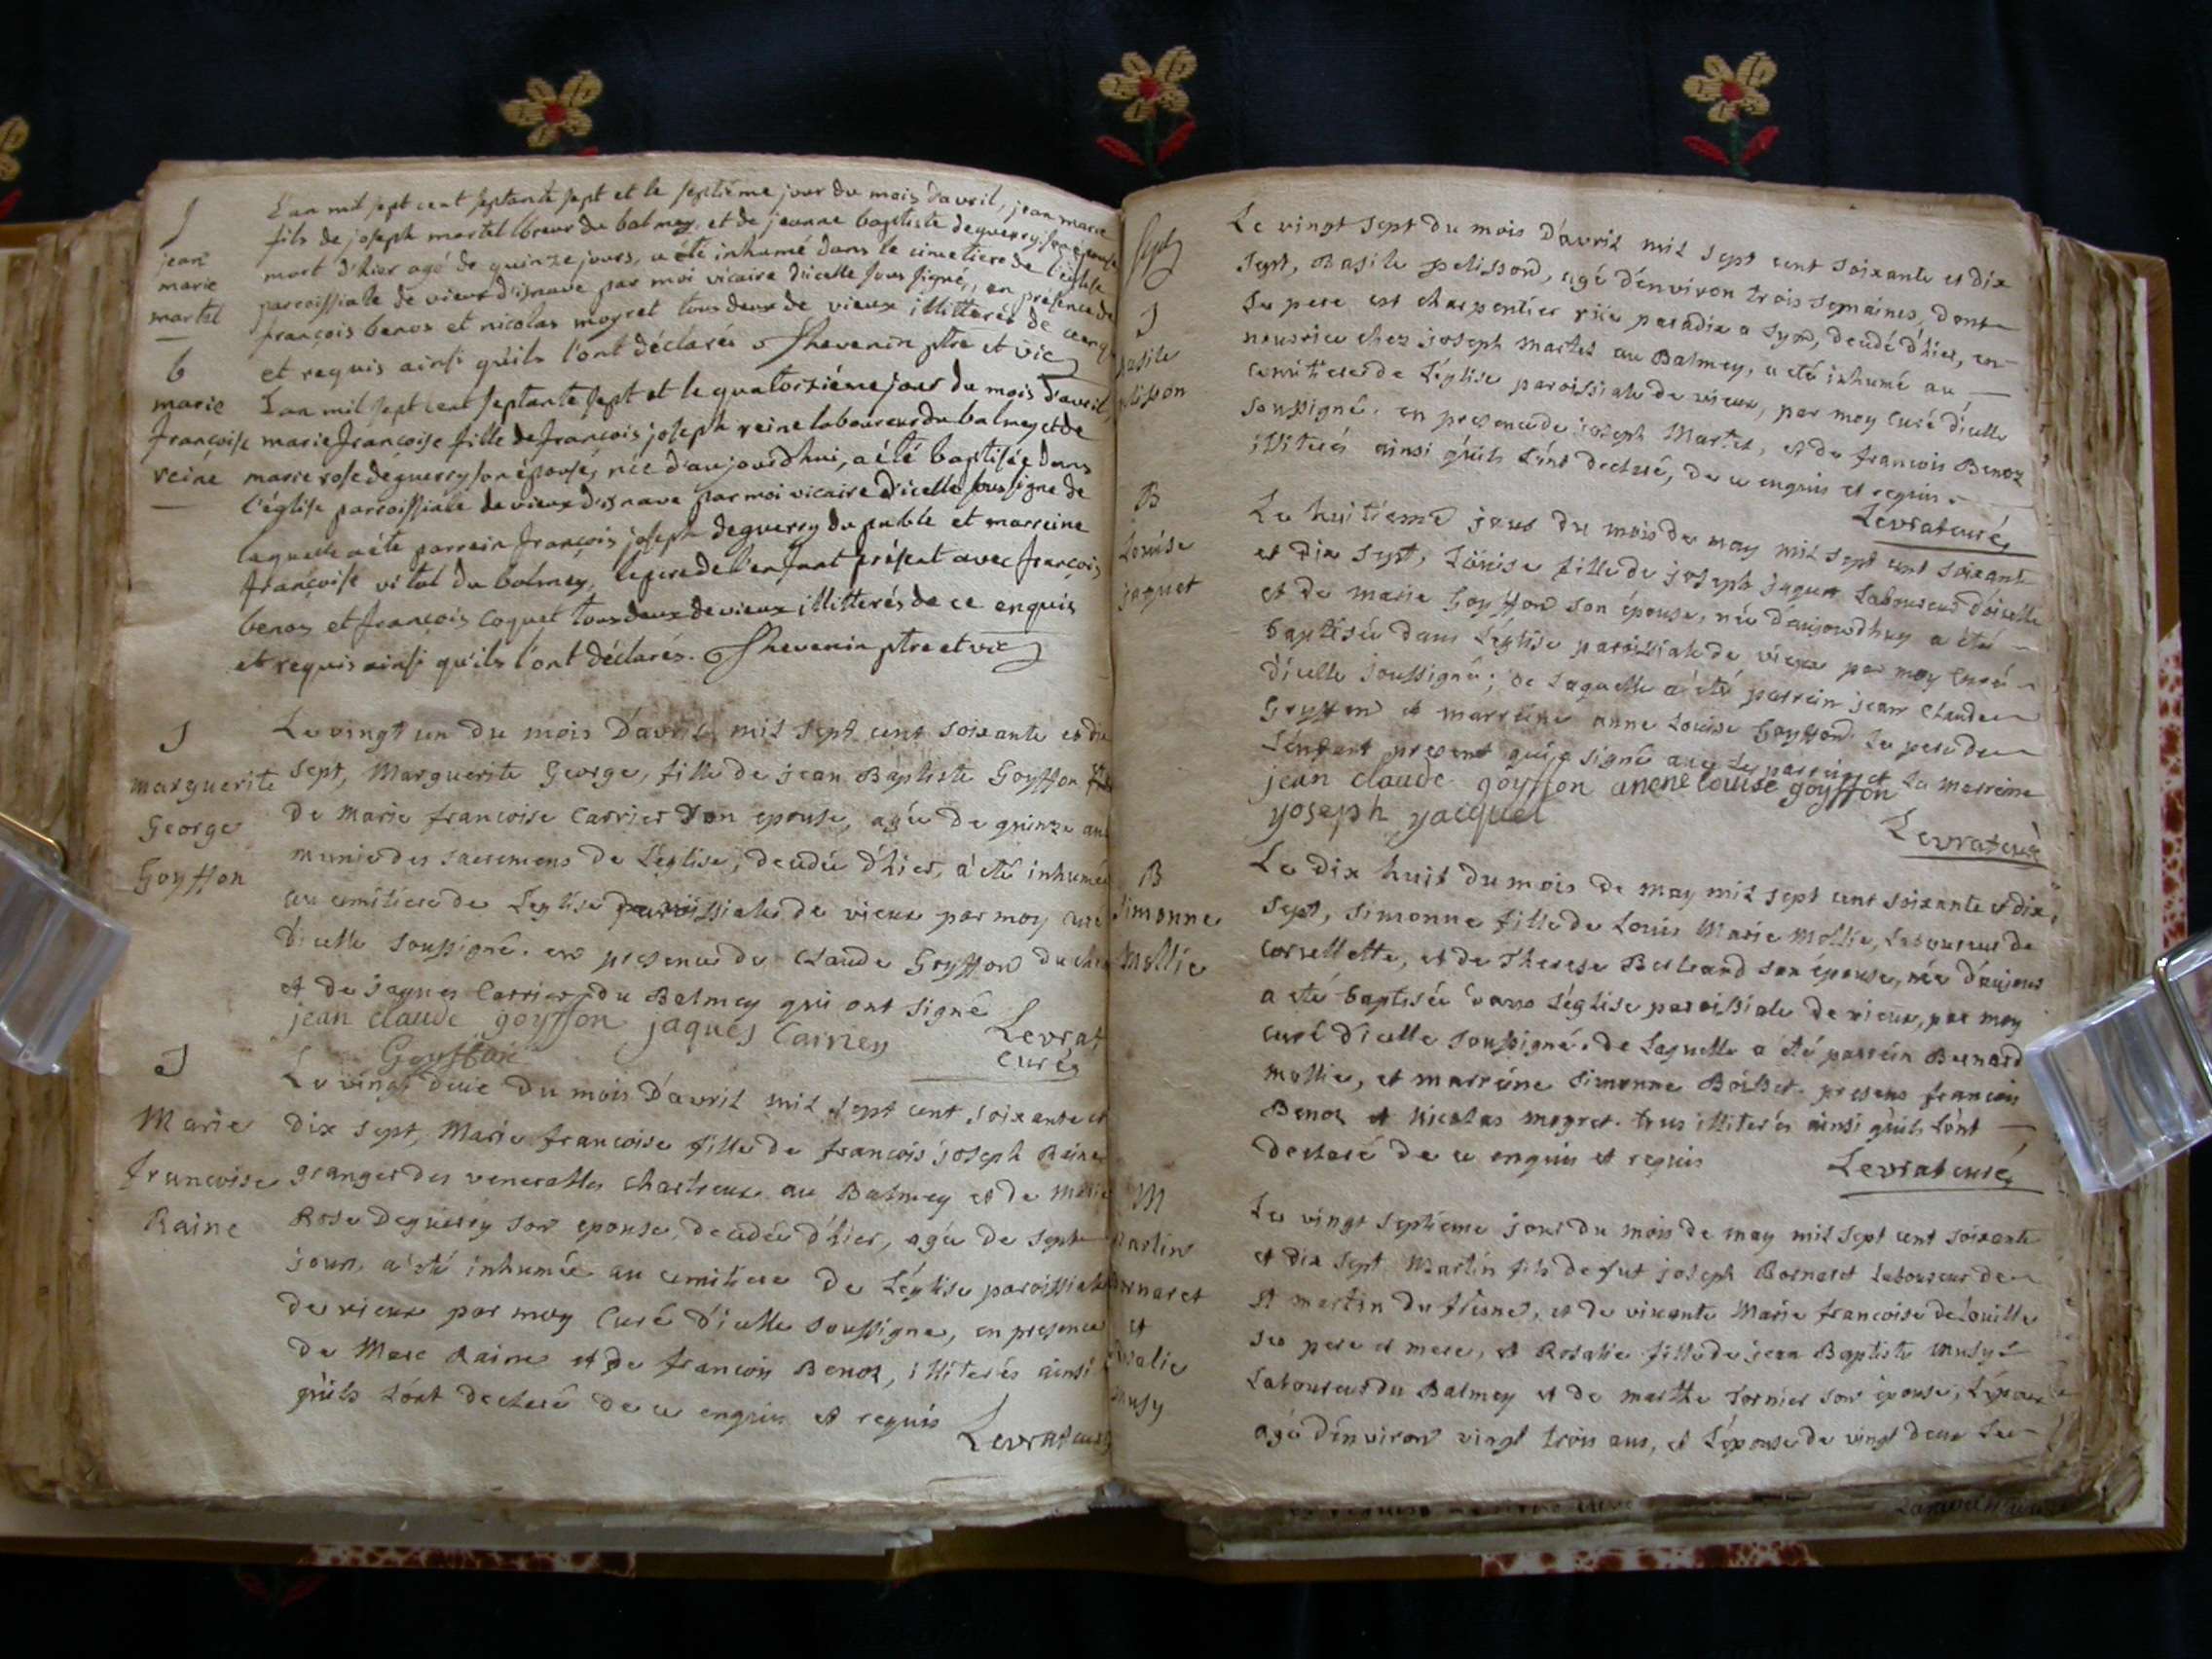 S
jean
marie
martel
L'an mil sept cent septante sept et le septième jour du mois d'avril, jean marie
fils de joseph martel lbreur du balmey, et de jeanne baptiste deguerry son épouse
mort d'hier agé de quinze jours, a été inhumé dans le cimetiere de l'église
parroissiale de vieux d'isnave par moi vicaire d'icelle sous signé, en présence de
françois benos et nicolas moyret tous deux de vieux illitterés de ce enquis
et requis ainsi qu'ils l'ont déclarés Thevenin ptre et vic
b
marie
françoise
reine
L'an mil sept cent septante sept et le quatorzième jour du mois d'avril,
marie françoise fille de françois joseph reine laboureur du balmey et de
marie rose déguerry son épouse, née d'aujourdhui, a été baptisée dans
l'église parroissiale de vieux d'isnave par moi vicaire d'icelle sous signé de
laquelle a été parrein françois joseph deguerry du puble et marreine
françoise vital du balmey, le pere de l'enfant présent avec françois
benos et françois coquet tous deux de vieux illitterés de ce enquis
et requis ainsi qu'ils l'ont déclarés. Thevenin ptre et vic
S
marguerite
George
Goyffon
Le vingt un du mois D'avril mil sept cent soixante et dix
sept, Marguerite George, fille de jean Baptiste Goyffon
de Marie francoise Carrier son epouse, agée de quinze ans
munie des sacremens de L'église, decedée d'hier, a été inhumée
au cemitiere de L'église paroissiale de vieux par moy curé
d'icelle soussigné. en presence de Claude Goyffon
et de jaques Carrier du Balmey qui ont signé
jean claude goyffon jaques Carrier Levrat
Goyffon curé
S
Marie
francoise
Raine
Le vingt deux du mois D'avril mil sept cent soixante et
dix sept, Marie francoise fille de francois joseph Reine
granger des venerables chartreux au Balmey et de Marie
Rose Deguerry son epouse, decedée d'hier, agée de sept
jours, a été inhumée au cemitiere de L'église paroissiale
de vieux par moy Curé d'icelle soussigné, en presence
de Marc Raine et de francois Benos, illiterés ainsi
qu'ils L'ont declaré de ce enquis et requis
Levrat curé
S
Basile
pelisson
Le vingt sept du mois D'avril mil sept cent soixante et dix
sept, Basile pelisson, agé d'environ trois semaines, dont
Le pere est charpentier rue paradis a Lyon, decedé d'hier, en
nourrice chez joseph Martel au Balmey, a eté inhumé au
cemitiere de L'église paroissiale de vieux, par moy Curé d'icelle
soussigné. en presence de joseph Martel, et de francois Benoz
illiterés ainsi qu'ils L'ont declaré, de ce enquis et requis.
Levrat curé
B
Louise
jaquet
Le huitieme jour du mois de may mil sept cent soixante
et dix sept, Louise fille de joseph jaquet Laboureur d'oiselle
et de marie Goyffon son épouse, née d'aujourdhuy a été
baptisée dans L'église paroissiale de vieux par moy Curé
d'icelle soussigné; de Laquelle a été parrein jean Claude
Goyffon et marreine anne Louise Goyffon. Le pere de
L'enfant present qui a signé avec Le parrein et La marreine
jean claude goyffon anene louise goyffon
yoseph yacquet
Levrat curé
B
Simonne
Mollie
Le dix huit du mois de may mil sept cent soixante et dix
sept, Simonne fille de Louis Marie Mollie, Laboureur de
Corcellette, et de Therese Berteard son épouse, née d'aujour
a eté baptisée dans L'église paroissiale de vieux, par moy
curé d'icelle soussigné. de Laquelle a été parrein Bernard
mollie, et marreine Simonne presens francois
Benoz et Nicolas mogret. tous illiterés ainsi qu'ils L'ont
declaré de ce enquis et requis Levrat curé
M
Martin
Bornaret
et
Rosalie
musy
Le vingt septieme jour du mois de may mil sept cent soixante
et dix sept Martin fils de fut joseph Bornaret Laboureur de
St martin du fresne, et de vivante Marie francoise delouille
ses pere et mere, et Rosalie fille de jean Baptiste musy
Laboureur du Balmey et de marthe tornier son épouse, L'époux
agé d'environ vingt trois ans, et L'épouse de vingt deux Le